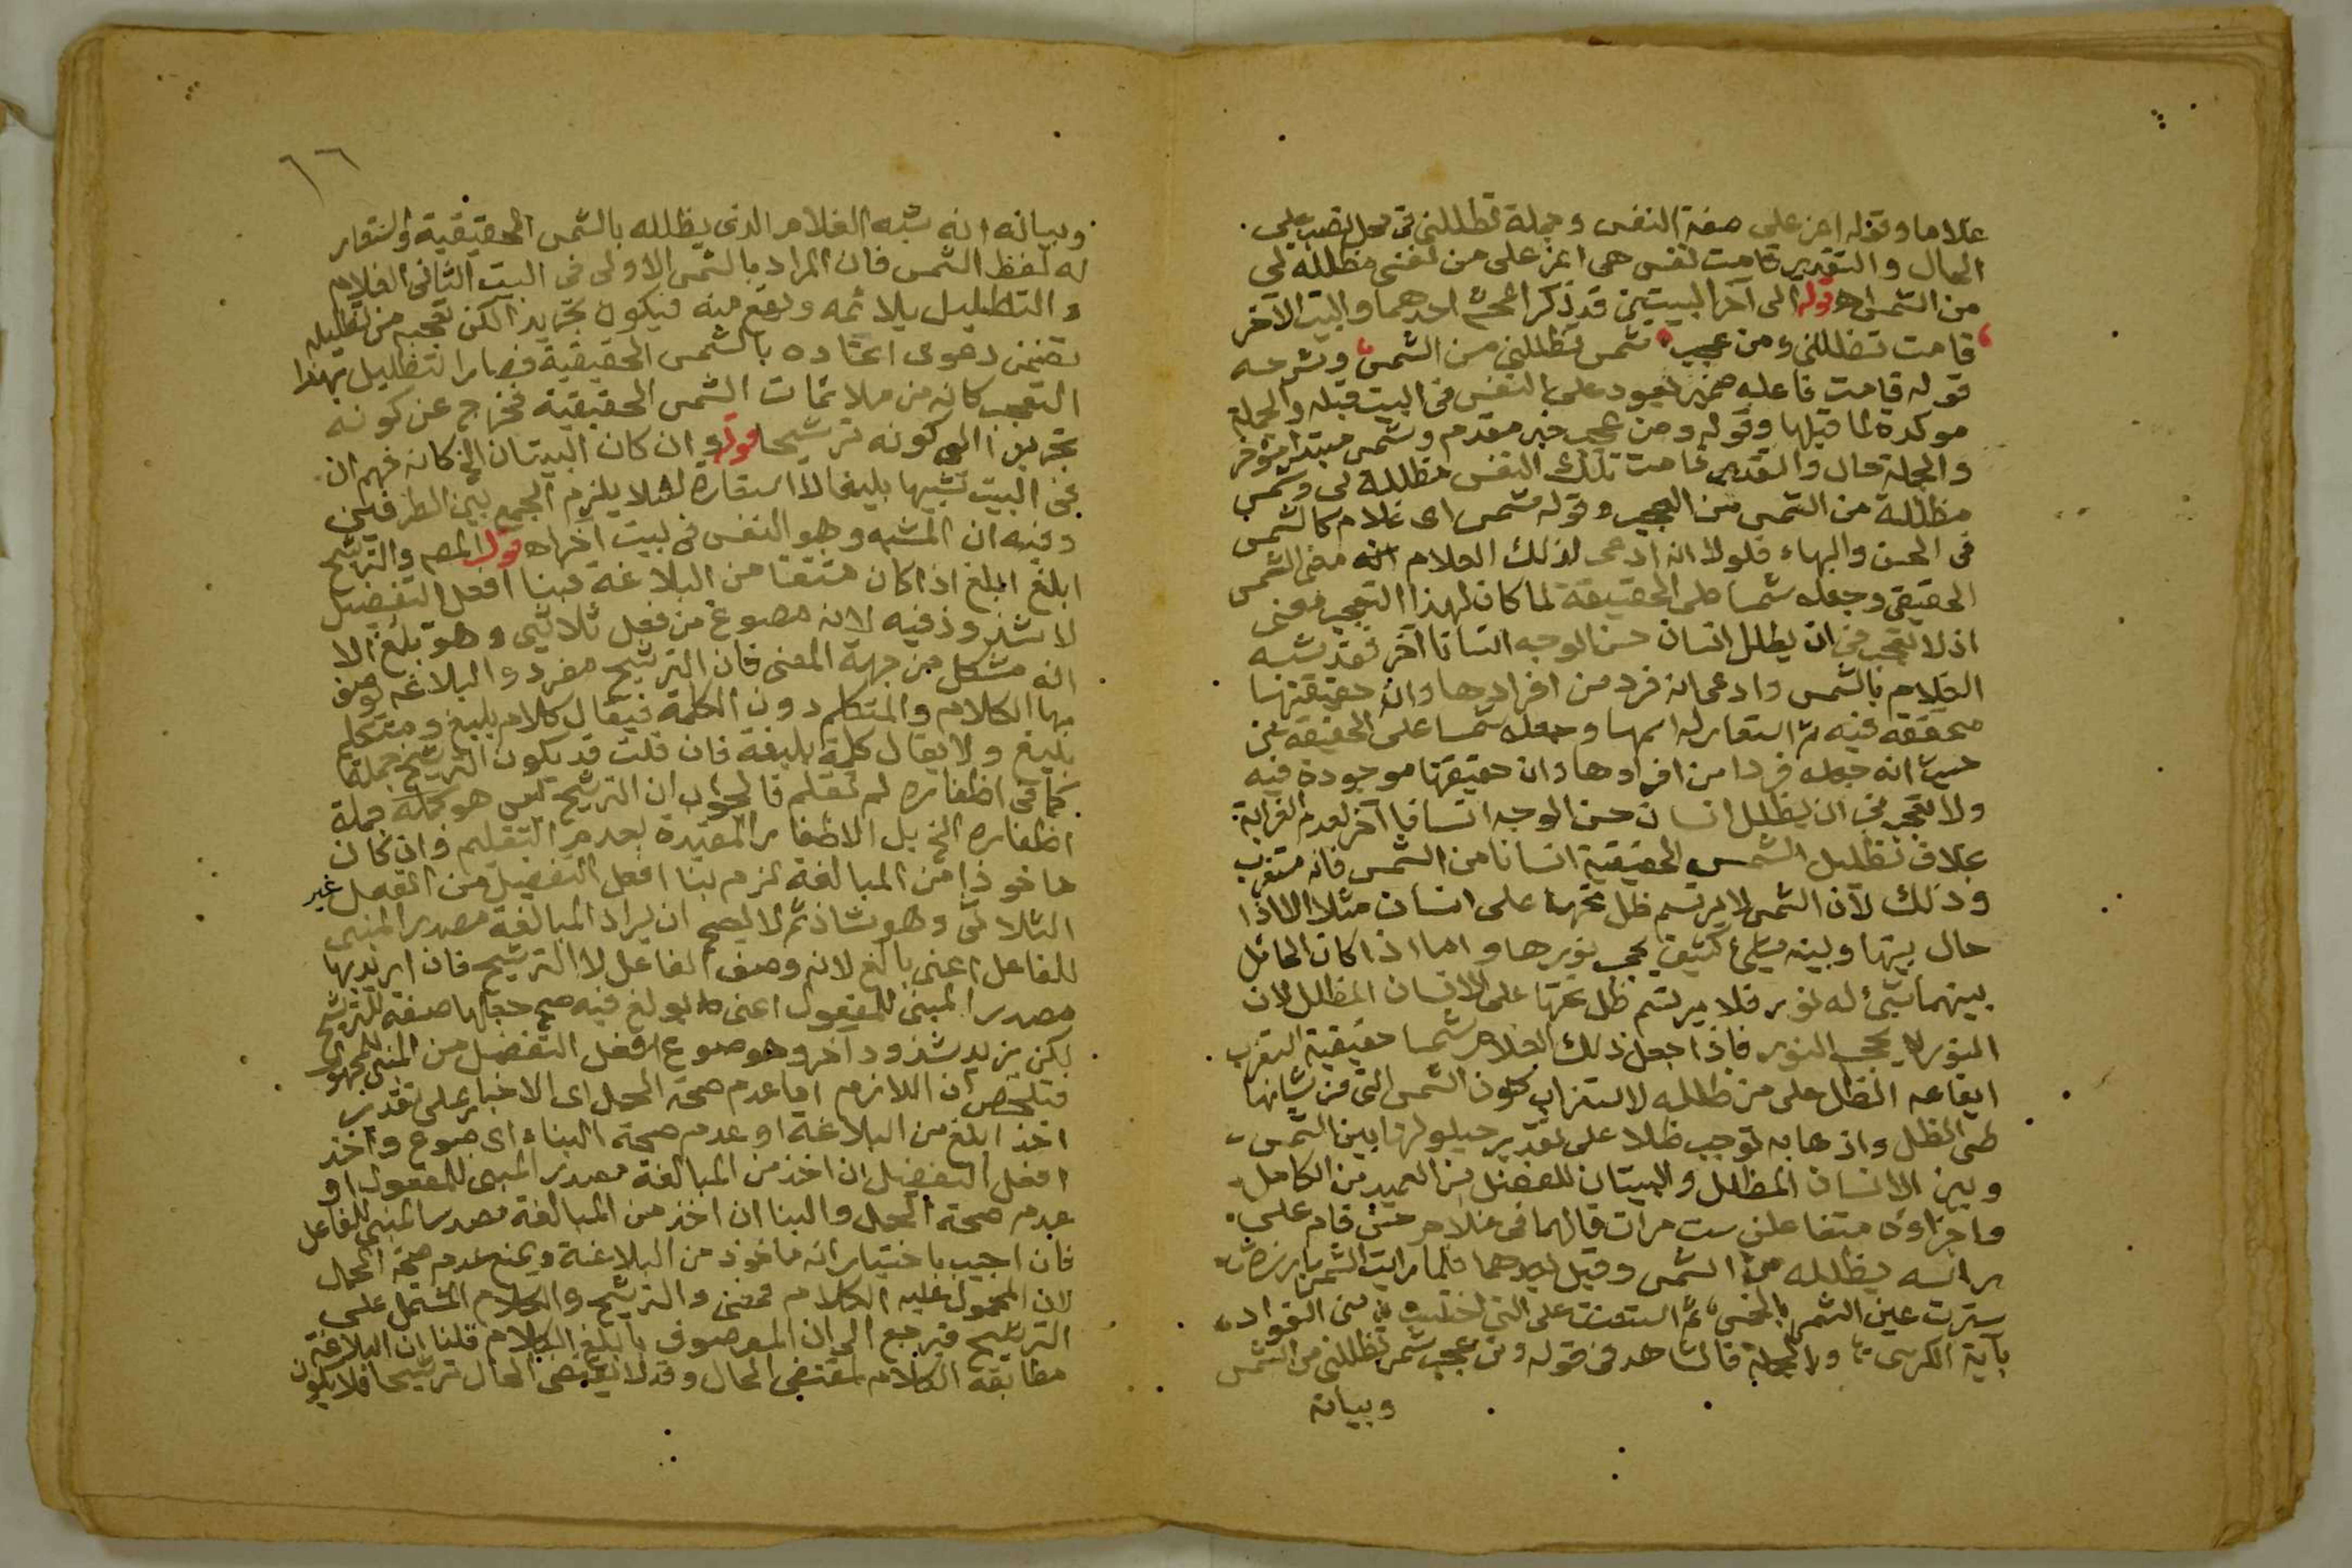 علاما وقوله اعز على صفة النفس وجملة تظللنى فى محل نصب على
الحال والتقدير قامت نفس هى اعز على من نفسى مظللة لى
من الشمس اه قوله الى آخر البيتين قد ذكر المحشى احدهما والبيت الآخر
قامت تظللنى ومن عجب شمس تظللنى من الشمس وشرحه
قوله قامت فاعله ضمير يعود على النفس فى البيت قبله والجملة
موكدة لما قبلها وقوله ومن عجب خبر مقدم وشمس مبتدا موخر
والجملة حال والتقدير قامت تلك النفس مظللة لى وشمس
مظللة من الشمس من العجب وقوله شمس اى غلام كالشمس
فى الحسن والبهاء فلولا انه ادعى لذلك الغلام انه معنى الشمس
الحقيقى وجعله شمسا على الحقيقة لما كان لهذا التعجب معنى
اذ لا تعجب فى ان يظلل انسان حسن الوجه انسانا آخر فقد شبه
الغلام بالشمس وادعى انه فرد من افرادها وان حقيقتها
متحققة فيه ثم استعار له اسمها وجعله شمسا على الحقيقة من
حيث انه جعله فردا من افرادها وان حقيقتها موجودة فيه
ولا تعجب فى ان يظلل انسان حسن الوجه انسانا آخر لعدم الغرابة
بخلاف تظليل الشمس الحقيقية انسانا من الشمس فانه مستغرب
وذلك لان الشمس لا يرتسم ظل تحتها على انسان مثلا الا اذا
حال بينها وبينه شئ كثيف يحجب نورها واما اذا كان الحائل
بينهما شئ له نور فلا يرتسم ظل تحتها على الانسان المظلل لان
النور لا يحجب النور فاذا جعل ذلك الغلام شمسا حقيقية استغرب
ايقاعه الظل على من ظلله لاستغراب كون الشمس التى من شانها
طى الظل واذهابه توجب ظلا على تقدير حيلولتها بين الشمس
وبين الانسان المظلل والبيتان للفضل بن العميد من الكامل
واجزاؤه متفاعلن ست مرات قالهما فى غلام حسن قام على
راسه يظلله من الشمس وقيل لاحدهما فلما رايت الشمس بارزة
سترت عين الشمس بالخمس ثم استعنت على التى اختلبت منى الفواد
بآية الكرسى وبالجملة فالشاهد فى قوله ومن عجب شمس تظللنى من الشمس
وبيانه
١٦
وبيانه انه شبه الغلام الذى يظلله بالشمس الحقيقية واستعار
له لفظ الشمس فان المراد بالشمس الاولى فى البيت الثانى الغلام
والتظليل يلائمه ويقع منه فيكون تجريدا لكن تعجبه من تظليله
تضمن دعوى اتحاده بالشمس الحقيقية فصار التظليل بهذا
التعجب كانه من ملائمات الشمس الحقيقية فخرج عن كونه
تجريدا الى كونه ترشيحا قوله وان كان البيتان الخ كانه فهم ان
فى البيت تشبيها بليغا لا استعارة لئلا يلزم الجمع بين الطرفين
وفيه ان المشبه وهو النفس فى بيت آخر اه قوله المص والترشيح
ابلغ ابلغ اذا كان مشتقا من البلاغة فبنا افعل التفضيل
لا شذوذ فيه لانه مصوغ من فعل ثلاثى وهو بلغ الا
انه مشكل من جهة المعنى فان الترشيح مفرد والبلاغة يوصف
بها الكلام والمتكلم دون الكلمة فيقال كلام بليغ ومتكلم
بليغ ولا يقال كلمة بليغة فان قلت قد يكون الترشيح جملة
كما فى اظفاره لم تقلم فالجواب ان الترشيح ليس هو جملة
اظفاره الخ بل الاظفار المقيدة بعدم التقليم وان كان
ماخوذا من المبالغة لزم بنا افعل التفضيل من الفعل غير
الثلاثى وهو شاذ ثم لا يصح ان يراد المبالغة مصدر المبنى
للفاعل اعنى بالغ لانه وصف الفاعل لا الترشيح فان اريد بها
مصدر المبنى للمفعول اعنى بولغ فيه صح جعلها صفة للترشيح
لكن يزيد شذوذ آخر وهو صوع افعل التفضيل من المبنى للمجهول
فتلخص ان اللازم اما عدم صحة الحمل اى الاخبار على تقدير
اخذ ابلغ من البلاغة او عدم صحة البناء اى صوع واخذ
افعل التفضيل ان اخذ من المبالغة مصدر المبنى للمفعول او
عدم صحة الحمل والبنا ان اخذ من المبالغة مصدر المبنى للفاعل
فان اجيب باختيار انه ماخوذ من البلاغة ويمنع عدم صحة الحمل
لان المحمول عليه الكلام فمعنى والترشيح والكلام المشتمل على
الترشيح فيرجع الى ان الموصوف بابلغ الكلام قلنا ان البلاغة
مطابقة الكلام لمقتضى الحال وقد لا يقتضى الحال ترشيحا فلا يكون